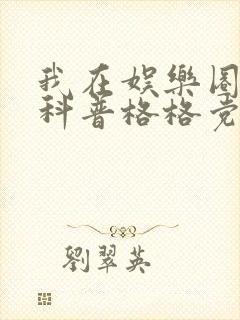 我在娱樂圈
科普格格党
劉翠英